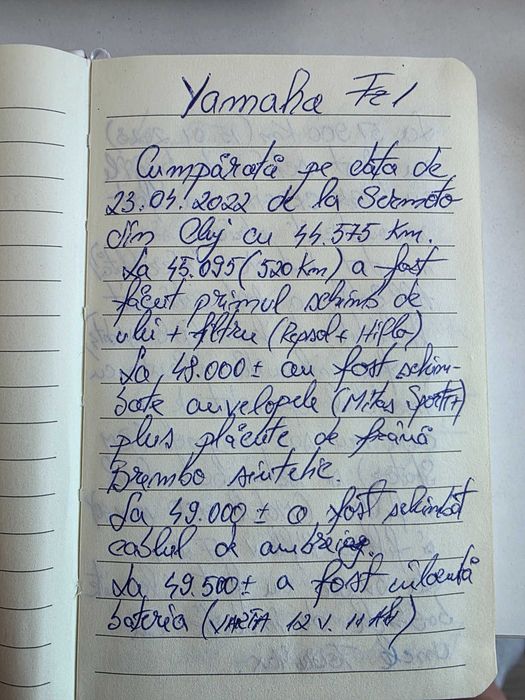 Yamaha Fz1
Cumpărată pe data de
23.04.2022 de la Sermoto
din Cluj cu 44.575 Km.
La 45.095 (520 Km) a fost
făcut primul schimb de
ulei + filtru (Repsol + Hiflo)
La 48.000 ± au fost schim-
bate anvelopele (Mitas Sport+)
plus plăcuțe de frână
Brembo sintetic.
La 49.000 ± a fost schimbat
cablul de ambreiaj.
La 49.500 ± a fost înlocuită
bateria (VARTA 12 V. 11 AH)